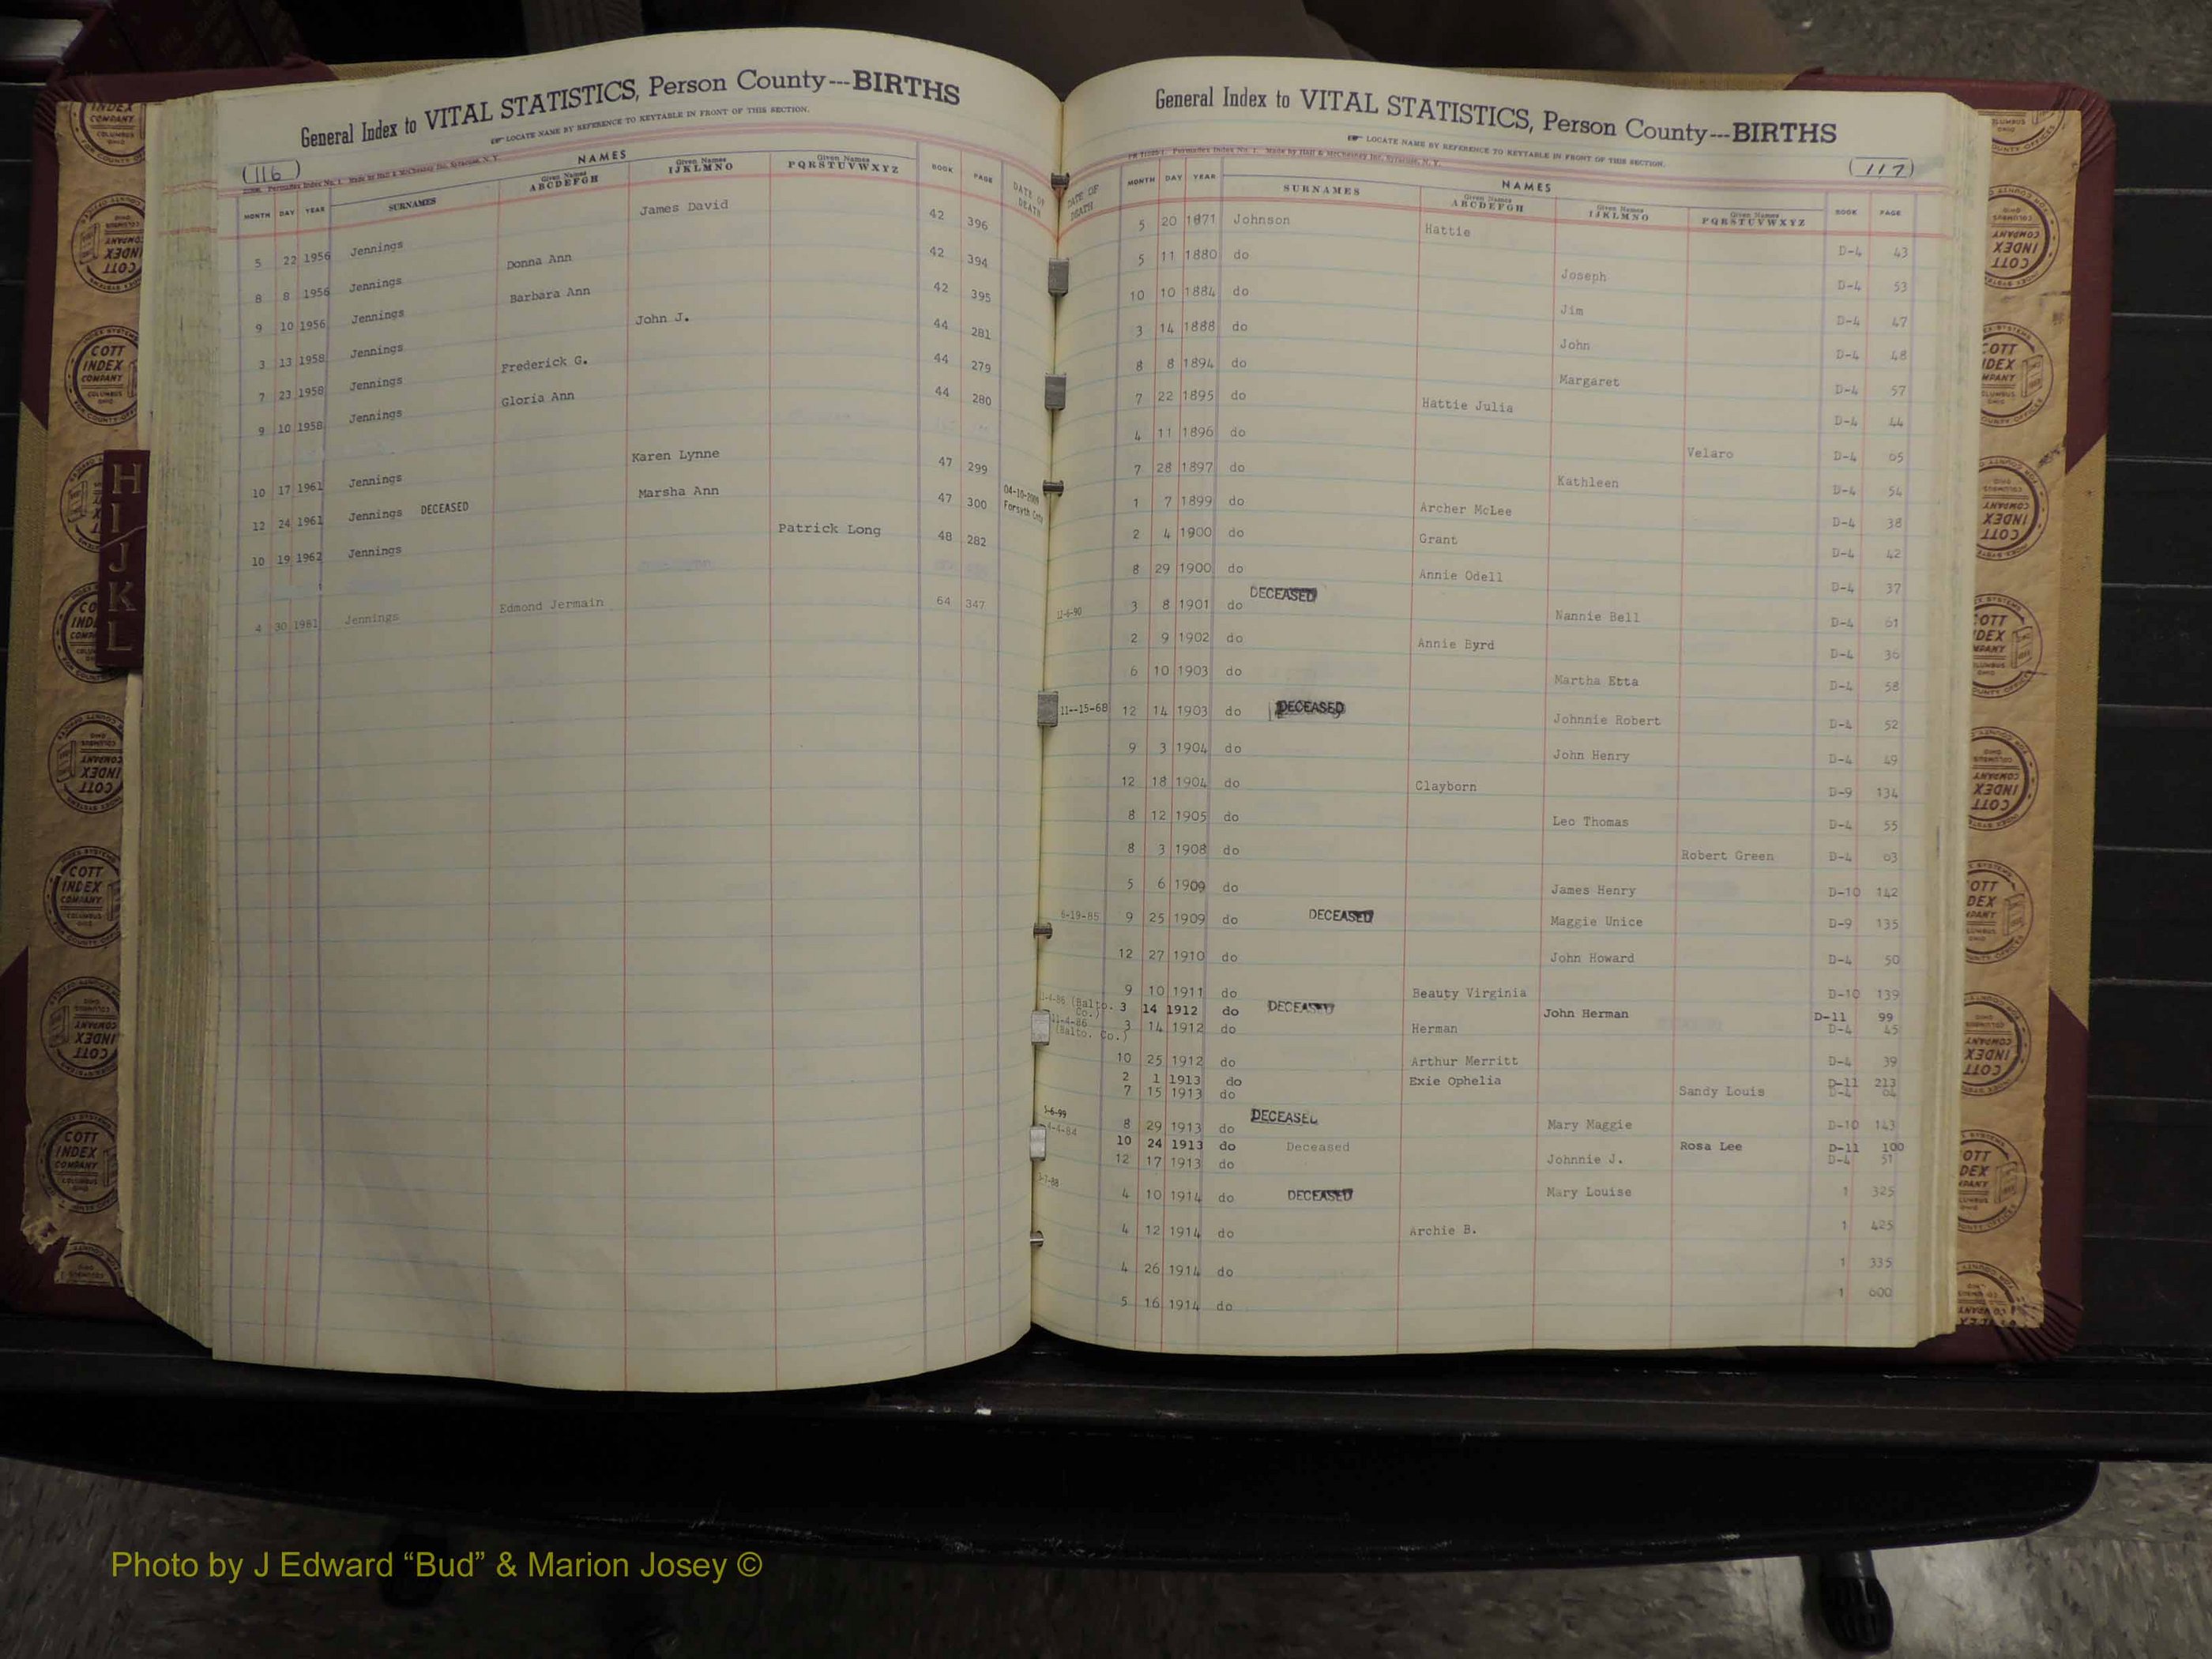 General Index to VITAL STATISTICS, Person County---BIRTHS
LOCATE NAME BY REFERENCE TO KEYTABLE IN FRONT OF THIS SECTION.
(116)
NAMES
MONTH DAY YEAR SURNAMES Given Names ABCDEFGH Given Names IJKLMNO Given Names PQRSTUVWXYZ BOOK PAGE DATE OF DEATH
5 22 1956 Jennings James David 42 396
8 8 1956 Jennings Donna Ann 42 394
9 10 1956 Jennings Barbara Ann 42 395
3 13 1958 Jennings John J. 44 281
7 23 1958 Jennings Frederick G. 44 279
9 10 1958 Jennings Gloria Ann 44 280
10 17 1961 Jennings Karen Lynne 47 299
12 24 1961 Jennings DECEASED Marsha Ann 47 300 Forsyth
10 19 1962 Jennings Patrick Long 48 282
4 30 1981 Jennings Edmond Jermain 64 347
General Index to VITAL STATISTICS, Person County---BIRTHS
LOCATE NAME BY REFERENCE TO KEYTABLE IN FRONT OF THIS SECTION.
Permaflex Index No. 1. Made by Hall & McChesney Inc. Syracuse, N. Y.
(117)
NAMES
DATE OF DEATH MONTH DAY YEAR SURNAMES Given Names ABCDEFGH Given Names IJKLMNO Given Names PQRSTUVWXYZ BOOK PAGE
5 20 1871 Johnson Hattie D-4 43
5 11 1880 do Joseph D-4 53
10 10 1884 do Jim D-4 47
3 14 1888 do John D-4 48
8 8 1894 do Margaret D-4 57
7 22 1895 do Hattie Julia D-4 44
4 11 1896 do Velaro D-4 65
7 28 1897 do Kathleen D-4 54
1 7 1899 do Archer McLee D-4 38
2 4 1900 do Grant D-4 42
8 29 1900 do Annie Odell D-4 37
3 8 1901 do DECEASED Nannie Bell D-4 61
2 9 1902 do Annie Byrd D-4 36
6 10 1903 do Martha Etta D-4 58
11--15-68 12 14 1903 do DECEASED Johnnie Robert D-4 52
9 3 1904 do John Henry D-4 49
12 18 1904 do Clayborn D-9 134
8 12 1905 do Leo Thomas D-4 55
8 3 1908 do Robert Green D-4 63
5 6 1909 do James Henry D-10 142
6-19-85 9 25 1909 do DECEASED Maggie Unice D-9 135
12 27 1910 do John Howard D-4 50
9 10 1911 do Beauty Virginia D-10 139
(Balto. Co.) 3 14 1912 do DECEASED John Herman D-11 99
11-4-86 (Balto. Co.) 3 14 1912 do Herman D-4 45
10 25 1912 do Arthur Merritt D-4 39
2 1 1913 do Exie Ophelia D-11 213
7 15 1913 do Sandy Louis D-4 64
8 29 1913 do DECEASED Mary Maggie D-10 143
10 24 1913 do Deceased Rosa Lee D-11 100
12 17 1913 do Johnnie J. D-4 51
4 10 1914 do DECEASED Mary Louise 1 325
4 12 1914 do Archie B. 1 425
4 26 1914 do 1 335
5 16 1914 do 1 600
H I J K L
COTT INDEX COMPANY
COLUMBUS OHIO
Photo by J Edward “Bud” & Marion Josey ©